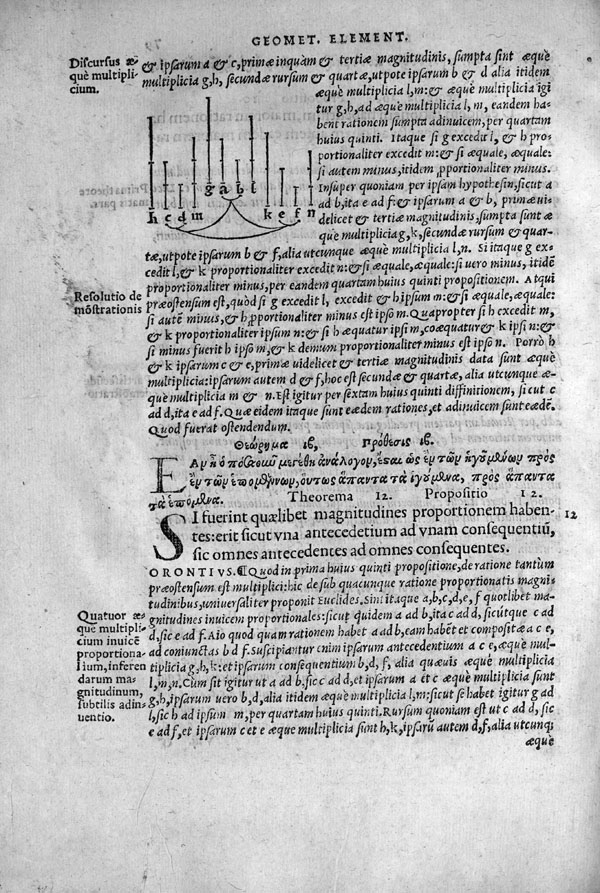 GEOMET. ELEMENT.
Discursus æ-
què multipli-
cium.
& ipsarum a & c, primæ inquàm & tertiæ magnitudinis, sumpta sint æquè
multiplicia g, h, secundæ rursum & quartæ, utpote ipsarum b & d alia itidem
æquè multiplicia l, m: & æquè multiplicia igi
tur g, h, ad æquè multiplicia l, m, eandem ha-
bent rationem sumpta adinuicem, per quartam
huius quinti. Itaque si g excedit l, & h pro-
portionaliter excedit m: & si æquale, æquale:
si autem minus, itidem ꝓportionaliter minus.
Insuper quoniam per ipsam hypothesin, sicut a
ad b, ita e ad f: & ipsarum a & b, primæ ui-
delicet & tertiæ magnitudinis, sumpta sunt æ-
què multiplicia g, k, secundæ rursum & quar-
h c d m g a b l k e f n
tæ, utpote ipsarum b & f, alia utcunque æquè multiplicia l, n. Si itaque g ex-
cedit l, & k proportionaliter excedit n: & si æquale, æquale: si uero minus, itidẽ
proportionaliter minus, per eandem quartam huius quinti propositionem. Atqui
Resolutio de
mõstrationis
præostensum est, quòd si g excedit l, excedit & h ipsum m: & si æquale, æquale:
si autẽ minus, & h ꝓportionaliter minus est ipso m. Quapropter si h excedit m,
& k proportionaliter ipsum n: & si h æquatur ipsi m, coæquatur & k ipsi n: &
si minus fuerit h ipso m, & k demum proportionaliter minus est ipso n. Porrò h
& k ipsarum c & e, primæ uidelicet & tertiæ magnitudinis data sunt æquè
multiplicia: ipsarum autem d & f, hoc est secundæ & quartæ, alia utcunque æ-
què multiplicia m & n. Est igitur per sextam huius quinti diffinitionem, sicut c
ad d, ita e ad f. Quæ eidem itaque sunt eædem rationes, et adinuicem sunt eædẽ.
Quod fuerat ostendendum.
Θεώρημα ιβ, πρόθεσις ιβ.
Εὰν ᾖ ὁποσαοῦν μεγέθη ἀνάλογον, ἔσαι ὡς ἓν τῶν ἡγουμένων πρὸς
ἓν τῶν ἑπομένων, οὕτως ἅπαντα τὰ ἡγούμενα, πρὸς ἅπαντα
τὰ ἑπόμενα.
Theorema 12. Propositio 12.
SI fuerint quælibet magnitudines proportionem haben- 12
tes: erit sicut vna antecedẽtium ad vnam consequentiũ,
sic omnes antecedentes ad omnes consequentes.
ORONTIVS. ¶ Quod in prima huius quinti propositione, de ratione tantùm
præostensum est multiplici: hîc de sub quacunque ratione proportionatis magni-
tudinibus, uniuersaliter proponit Euclides. Sint itaque a, b, c, d, e, f quotlibet ma-
gnitudines inuicem proportionales: sicut quidem a ad b, ita c ad d, sicútque c ad
d, sic e ad f. Aio quòd quam rationem habet a ad b, eam habẽt et compositæ a c e,
ad coniunctas b d f. Suscipiantur enim ipsarum antecedentium a c e, æquè mul-
tiplicia g, h, k: et ipsarum consequentium b, d, f, alia quæuis æquè multiplicia
l, m, n. Cùm sit igitur ut a ad b, sic c ad d, et ipsarum a et c æquè multiplicia sunt
g, h, ipsarum uero b, d, alia itidem æquè multiplicia l, m: sicut se habet igitur g ad
l, sic h ad ipsum m, per quartam huius quinti. Rursum quoniam est ut c ad d, sic
e ad f, et ipsarum c et e æque multiplicia sunt h, k, ipsarũ autem d, f, alia utcunq;
æquè
Quatuor æ-
què multipli-
cium inuicẽ
proportiona-
lium, inferen
darum ma-
gnitudinum,
subtilis adin-
uentio.